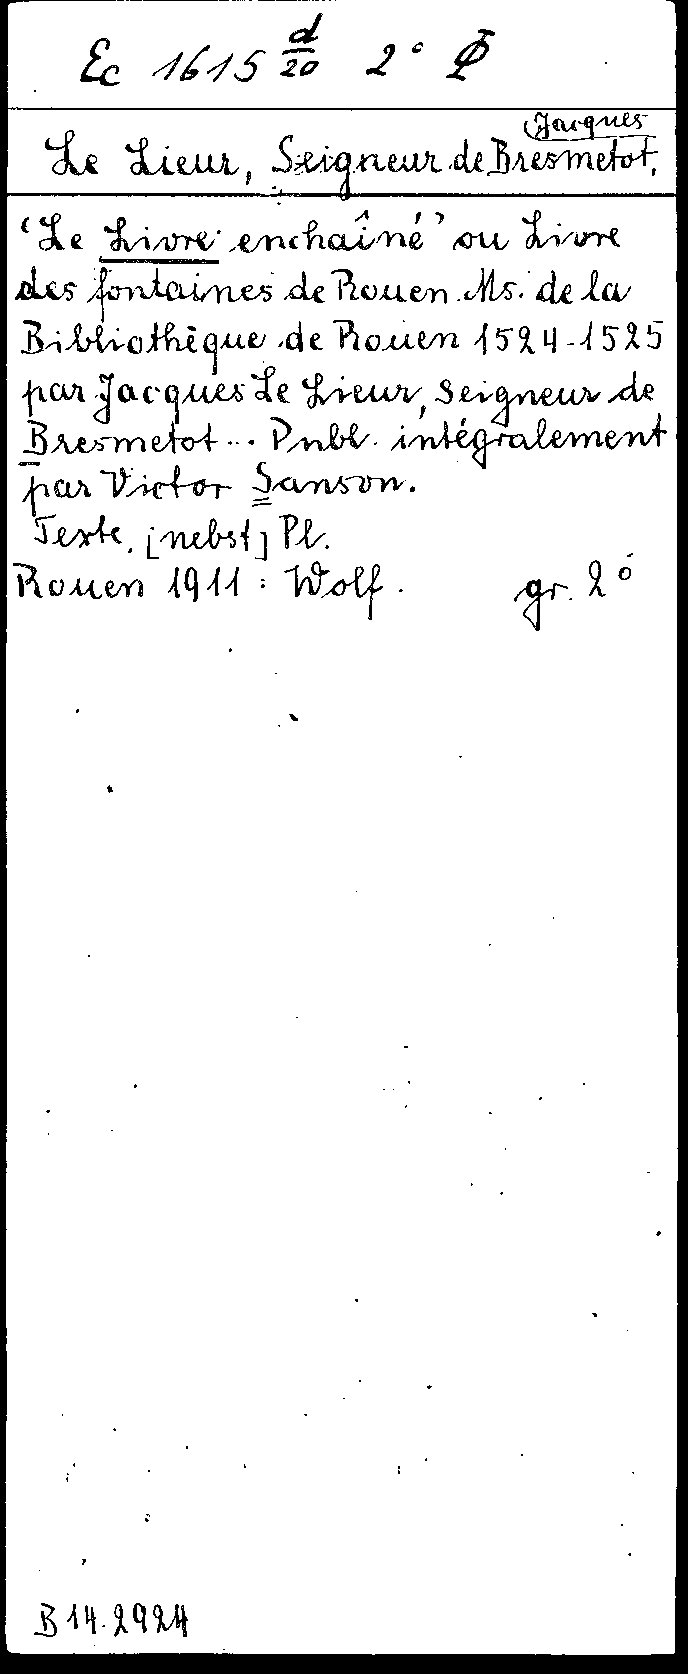 Ec 1615 d/20 2° Φ
Jacques
Le Lieur, Seigneur de Bresmetot,
'Le Livre enchaîné' ou Livre
des fontaines de Rouen. Ms. de la
Bibliothèque de Rouen 1524-1525
par Jacques Le Lieur, Seigneur de
Bresmetot... Publ. intégralement
par Victor Sanson.
Texte, [nebst] Pl.
Rouen 1911: Wolf. gr. 2°
B 14.2924